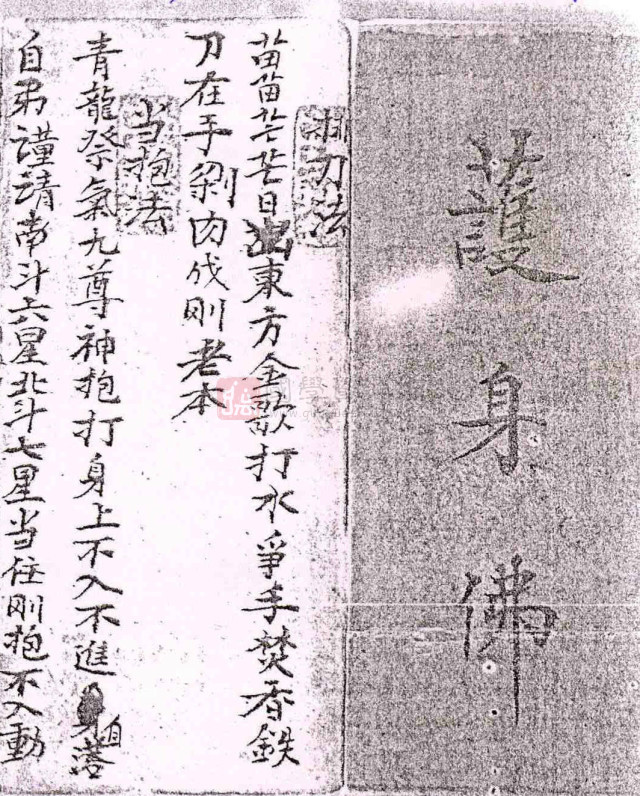 護身佛
刀法
苗苗茫茫日出東方金歌打水爭手焚香鉄
刀在手剁肉伐刚老本
当抱法
青龍祭氣九尊神抱打身上不入不進自落
自弟謹請南斗六星北斗七星当住刚抱不入動